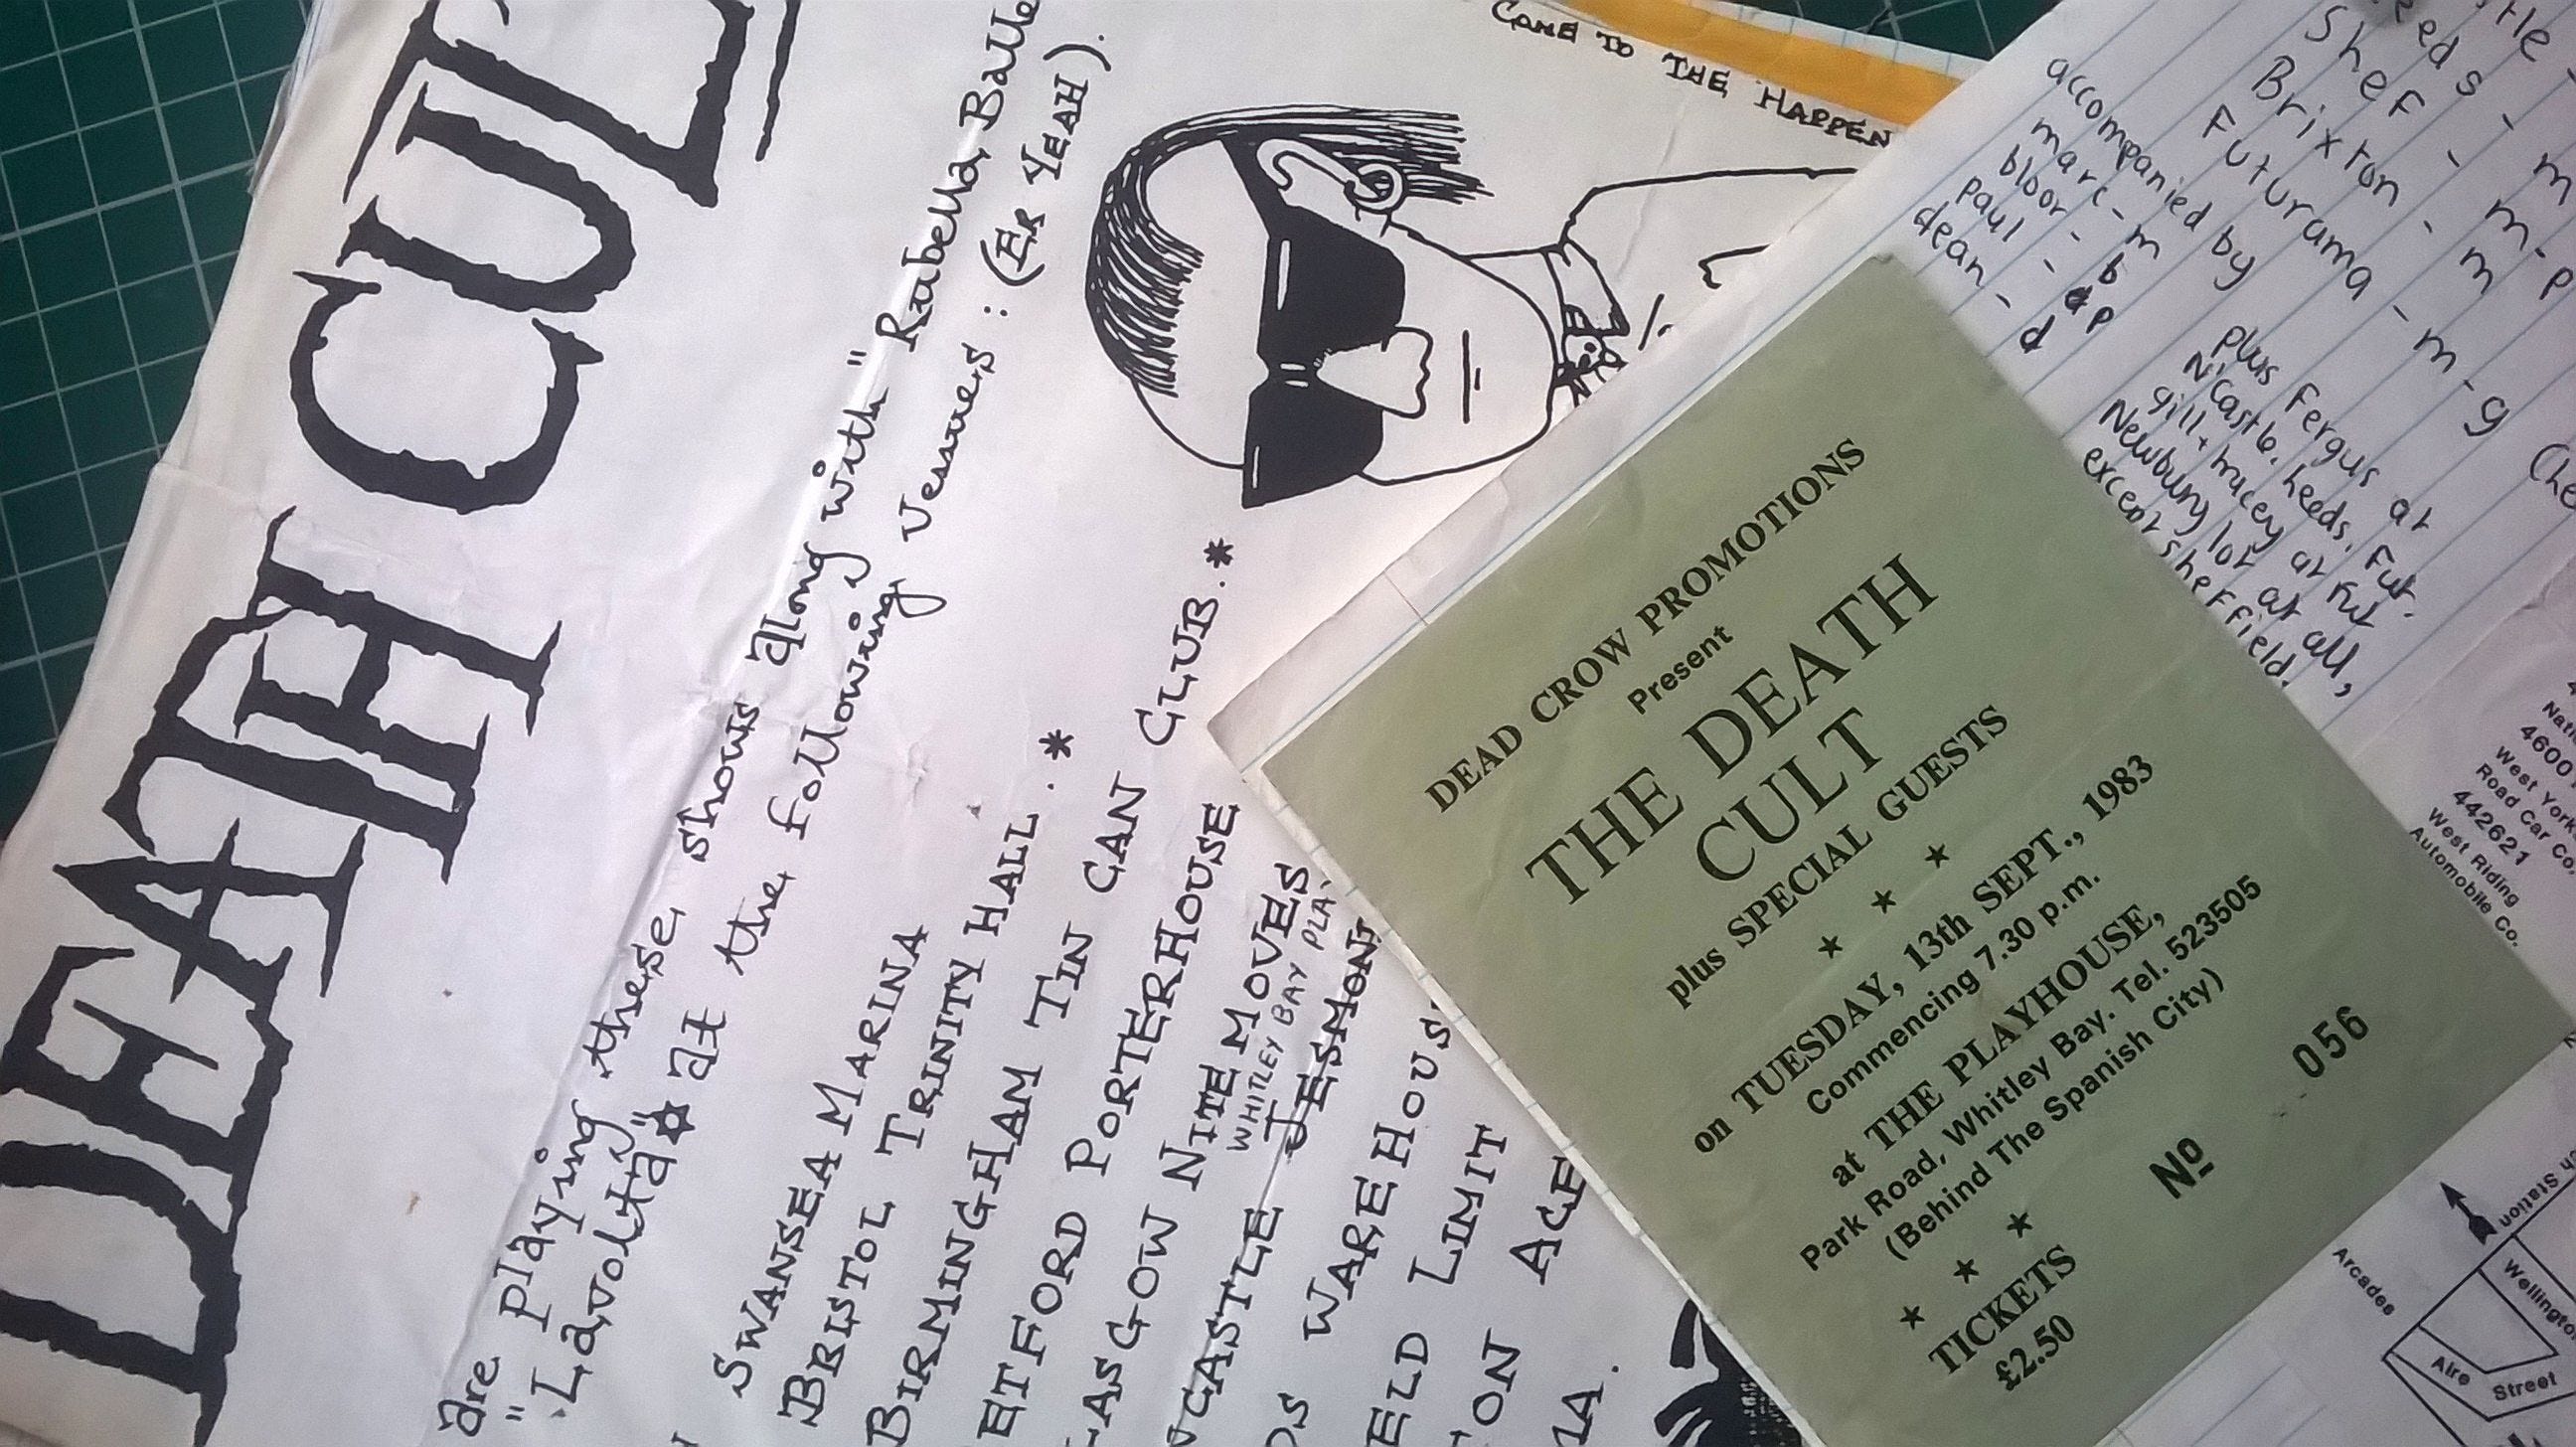 DEATH CUL
are playing these shows along with "Rabella, Balle
"Lavolta" at the following venues : (Er YEAH).
SWANSEA MARINA
BBISTOL TRINITY HALL . *
BIRMINGHAM TIN CAN CLUB. *
ETFORD PORTERHOUSE
ASGOW NITE MOVES
WHITLEY BAY PLA
CASTLE JESMONT
DS WAREHOUS
ELD LIMIT
TON ACE
MA.
COME TO THE HAPPEN
DEAD CROW PROMOTIONS
Present
THE DEATH
CULT
plus SPECIAL GUESTS
★ ★ ★
on TUESDAY, 13th SEPT., 1983
Commencing 7.30 p.m.
at THE PLAYHOUSE,
Park Road, Whitley Bay. Tel. 523505
(Behind The Spanish City)
★ ★ ★
Nº 056
TICKETS
£2.50
tle -
eeds - m
Shef - m-p
Brixton - m
Futurama - m-g (he
accompanied by
marc - m
bloor - b
paul - p
dean - d
plus Fergus at
N'Castle, heeds, Fut.
gill + tracey at Fut
Newbury lot at all,
except sheffield.
Nati
4600
West York
Road Car Co.
44261
West Riding
Automobile Co.
n Station
Arcades
Wellingto
Aire Street